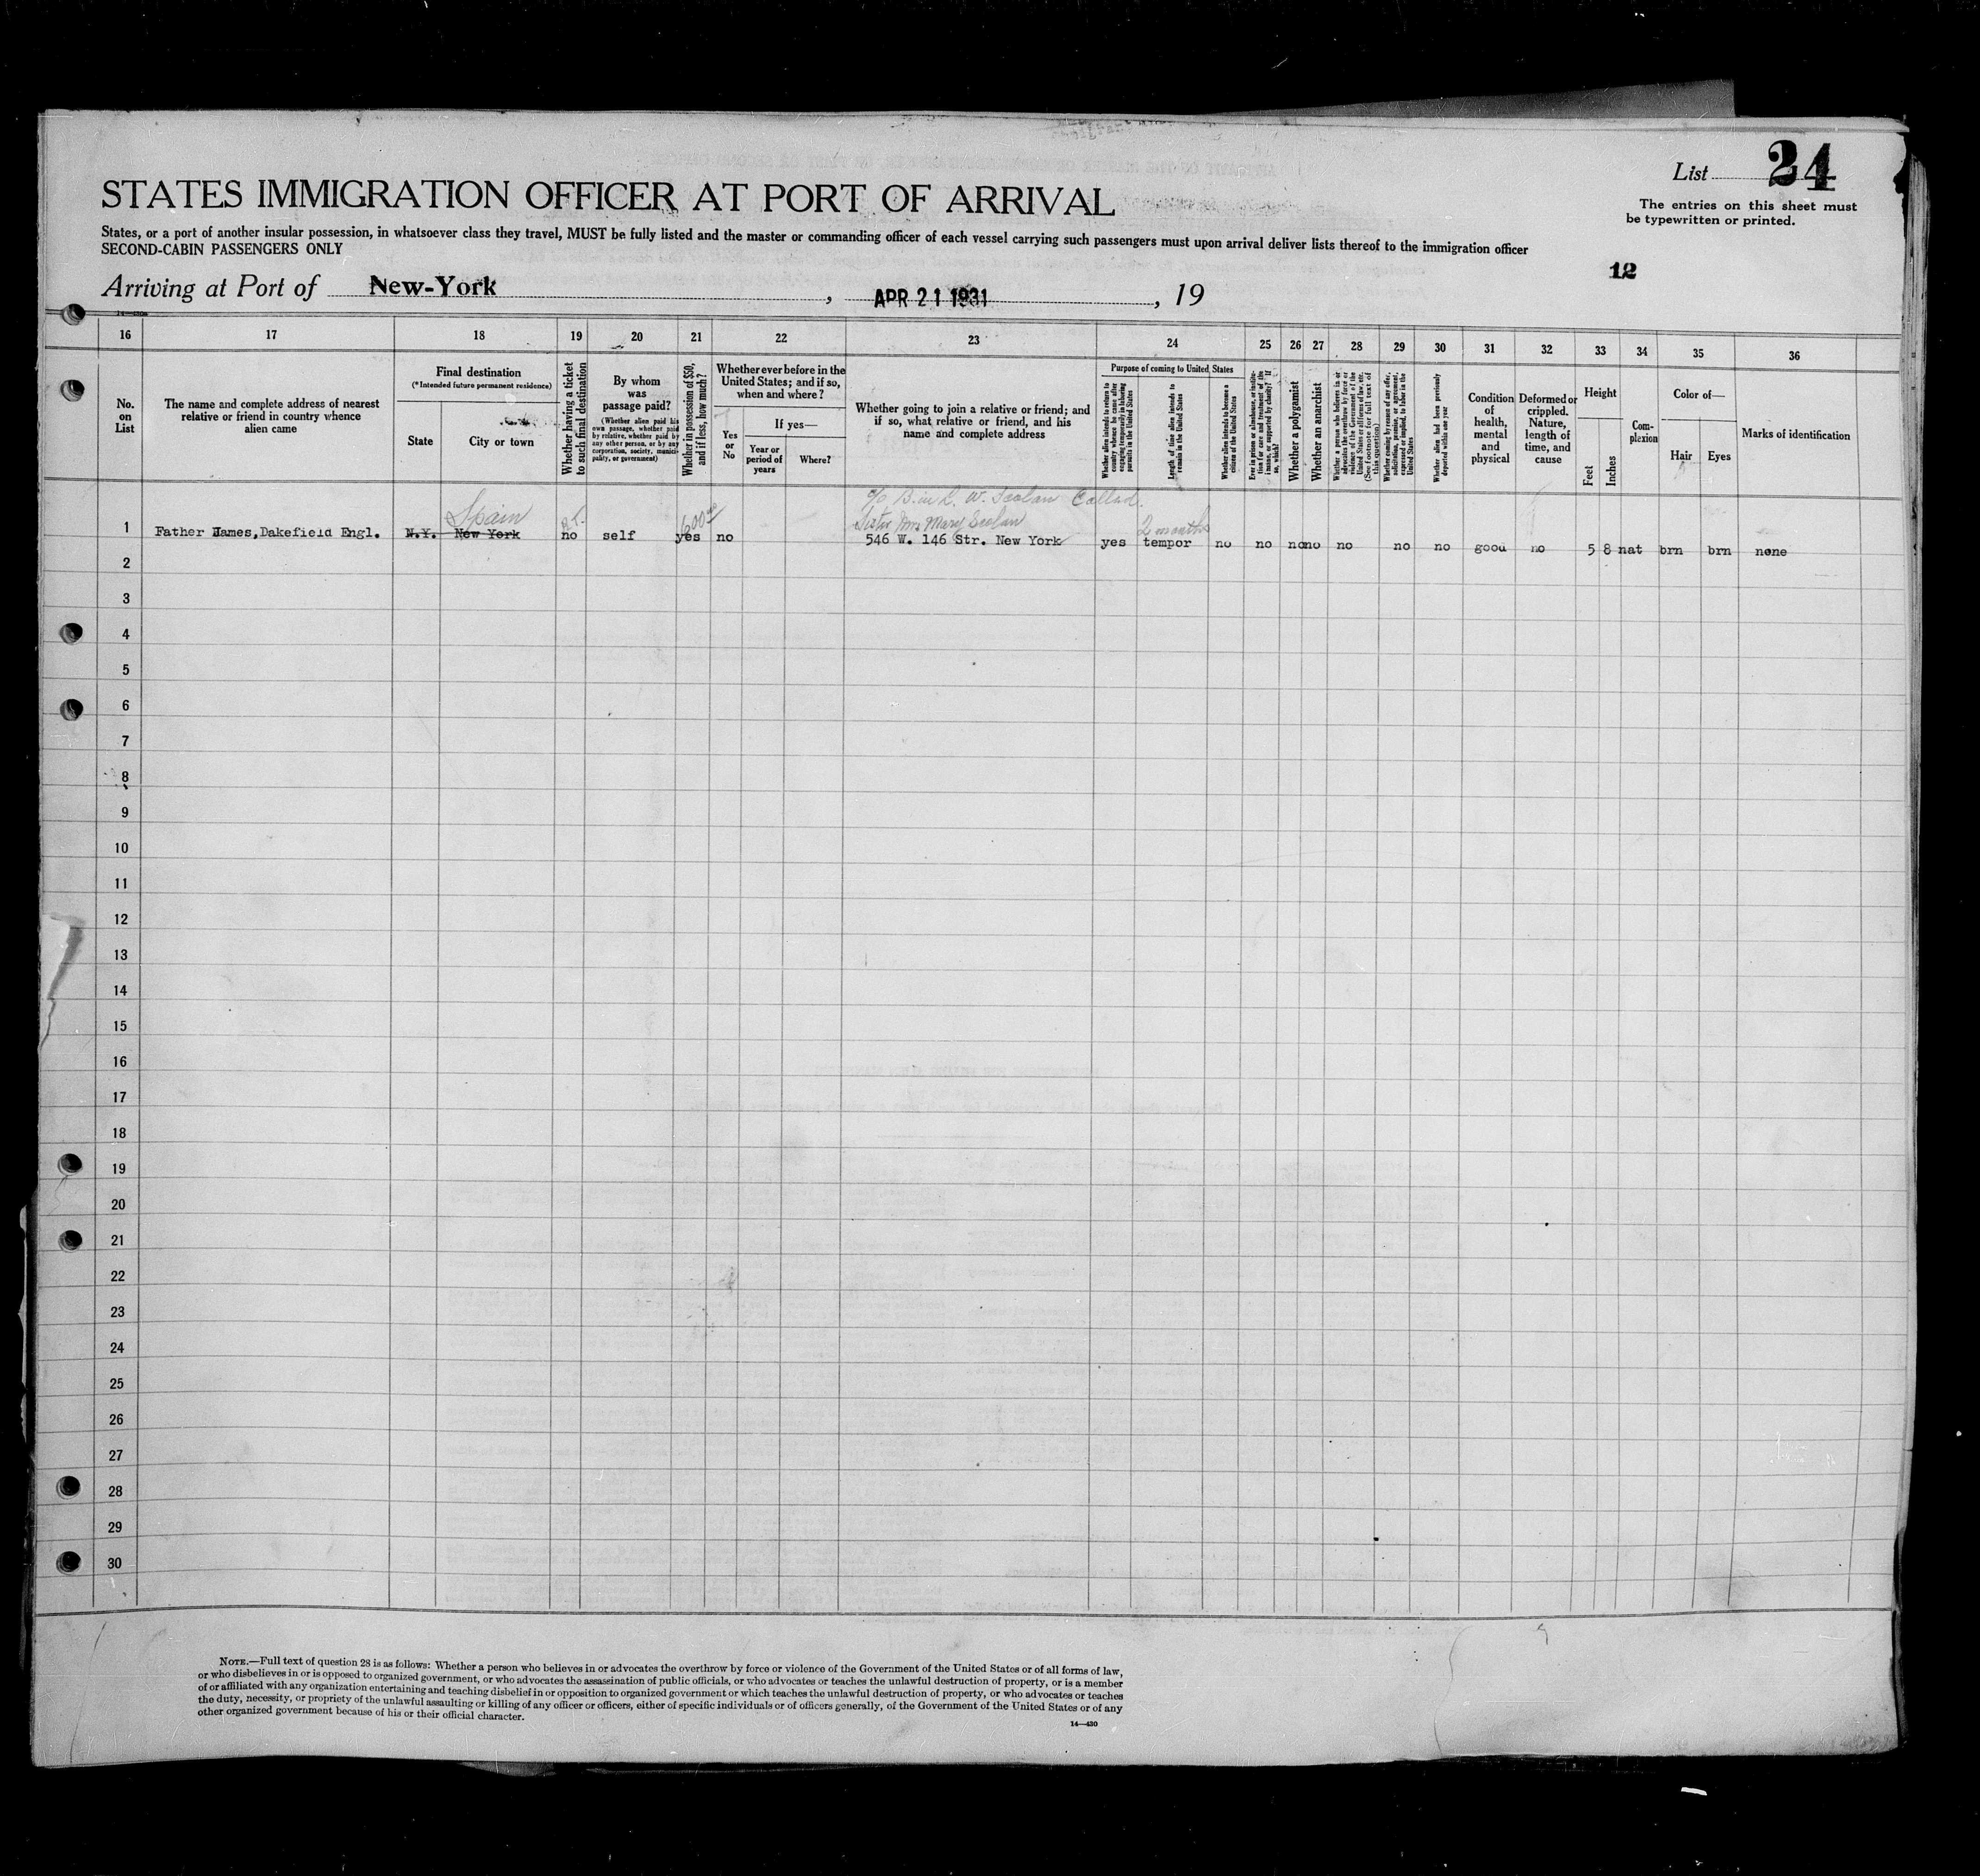 List 24
The entries on this sheet must
be typewritten or printed.
STATES IMMIGRATION OFFICER AT PORT OF ARRIVAL
States, or a port of another insular possession, in whatsoever class they travel, MUST be fully listed and the master or commanding officer of each vessel carrying such passengers must upon arrival deliver lists thereof to the immigration officer
SECOND-CABIN PASSENGERS ONLY
12
Arriving at Port of New-York, APR 21 1931, 19
16 17 18 19 20 21 22 23 24 25 26 27 28 29 30 31 32 33 34 35 36
No.
on
List
The name and complete address of nearest
relative or friend in country whence
alien came
Final destination
(*Intended future permanent residence)
State
City or town
Whether having a ticket
to such final destination
By whom
was
passage paid?
(Whether alien paid his
own passage, whether paid
by relative, whether paid by
any other person, or by any
corporation, society, munici-
pality, or government)
Whether in possession of $50,
and if less, how much?
Whether ever before in the
United States; and if so,
when and where?
Yes
or
No
If yes—
Year or
period of
years
Where?
Whether going to join a relative or friend; and
if so, what relative or friend, and his
name and complete address
Purpose of coming to United States
Whether alien intends to return to
country whence he came after
engaging temporarily in laboring
pursuits in the United States
Length of time alien intends to
remain in the United States
Whether alien intends to become a
citizen of the United States
Ever in prison or almshouse, or institu-
tion for care and treatment of the
insane, or supported by charity? If
so, which?
Whether a polygamist
Whether an anarchist
Whether a person who believes in or
advocates the overthrow by force or
violence of the Government of the
United States or all forms of law, etc.
(See footnote for full text of
this question)
Whether coming by reason of any offer,
solicitation, promise, or agreement,
expressed or implied, to labor in the
United States
Whether alien had been previously
deported within one year
Condition
of
health,
mental
and
physical
Deformed or
crippled.
Nature,
length of
time, and
cause
Height
Feet
Inches
Com-
plexion
Color of—
Hair
Eyes
Marks of identification
c/o B. in L. W. Scolan Called.
Spain 600 Sister Mrs Mary Scolan 2 months
1 Father James, Dakefield Engl. N.Y. New York no self yes no 546 W. 146 Str. New York yes tempor no no no no no no no good no 5 8 nat brn brn none
2
3
4
5
6
7
8
9
10
11
12
13
14
15
16
17
18
19
20
21
22
23
24
25
26
27
28
29
30
NOTE.—Full text of question 28 is as follows: Whether a person who believes in or advocates the overthrow by force or violence of the Government of the United States or of all forms of law,
or who disbelieves in or is opposed to organized government, or who advocates the assassination of public officials, or who advocates or teaches the unlawful destruction of property, or is a member
of or affiliated with any organization entertaining and teaching disbelief in or opposition to organized government or which teaches the unlawful destruction of property, or who advocates or teaches
the duty, necessity, or propriety of the unlawful assaulting or killing of any officer or officers, either of specific individuals or of officers generally, of the Government of the United States or of any
other organized government because of his or their official character.
14—430